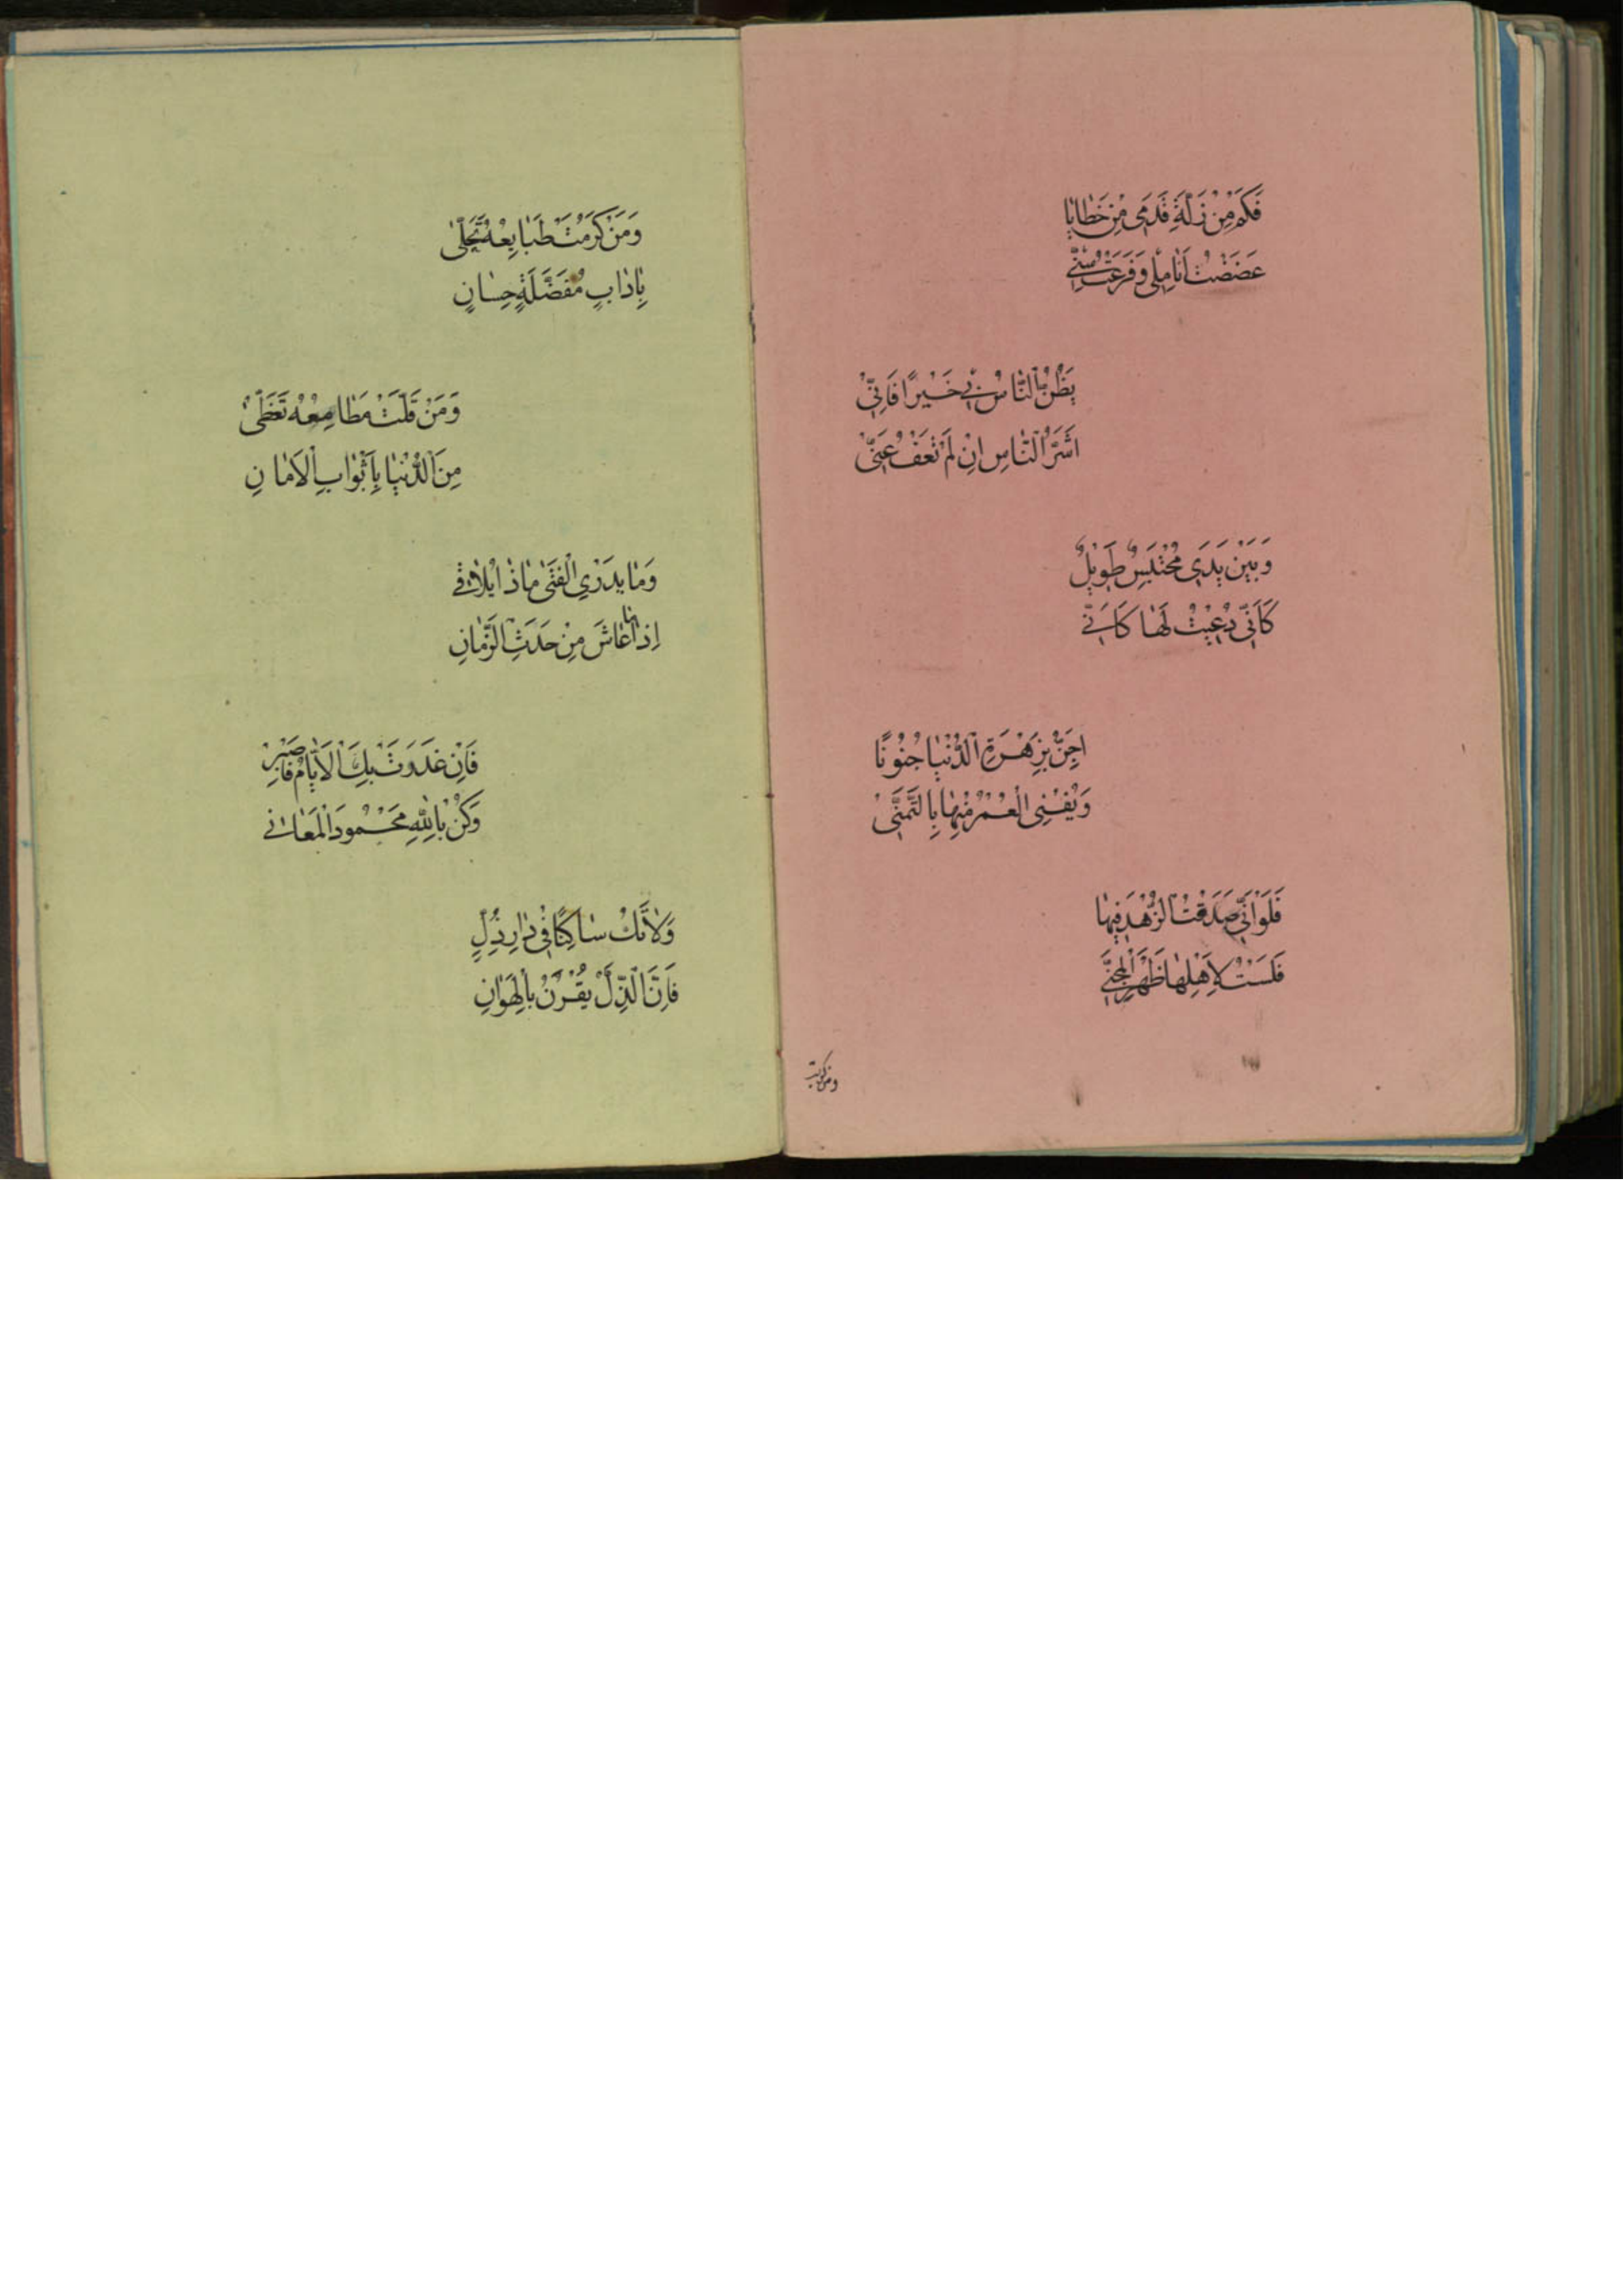 فَكَمْ مِنْ زَلَّةِ قَدَمِى مِنْ خَطَايَا
عَضَضْتُ اَنَامِلِى وَقَرَعْتُ سِنِّى
يَظُنُّ النَّاسُ بِى خَيْرًا فَاِنِّى
اَشَرُّ النَّاسِ اِنْ لَمْ تَعْفُ عَنِّى
وَبَيْنَ يَدَىَ مُحْتَبَسٌ طَوِيلٌ
كَاَنِّى دُعِيتُ لَهَا كَاَنِّى
اَجِنُّ بِزِهْرَةِ الدُّنْيَا جُنُونًا
وَيُفْنِى الْعُمْرُ مِنْهَا بِالتَّمَنِّى
فَلَوْ اَنِّى صَدَقْتُ الزُّهْدَ فِيهَا
قَلَبْتُ لِاَهْلِهَا ظَهْرَ الْمِجَنِّ
وَمَنْ كَرُمَتْ
وَمَنْ كَرُمَتْ طَبَايِعُهُ تَحَلّٰى
بِاٰدَابٍ مُفَضَّلَةٍ حِسَانٍ
وَمَنْ قَلَّتْ مَطَامِعُهُ تَغَطّٰى
مِنَ الدُّنْيَا بِاَثْوَابِ الْاَمَانِ
وَمَا يَدْرِي الْفَتٰى مَاذَا يُلَاقِى
اِذَا مَا عَاشَ مِنْ حَدَثِ الزَّمَانِ
فَاِنْ غَدَرَتْ بِكَ الْاَيَّامُ فَاصْبِرْ
وَكُنْ بِاللّٰهِ مَحْمُودَ الْمَعَانِى
وَلَا تَكُ سَاكِنًا فِى دَارِ ذُلٍّ
فَاِنَّ الذِّلَّ يُقْرَنُ بِالْهَوَانِ